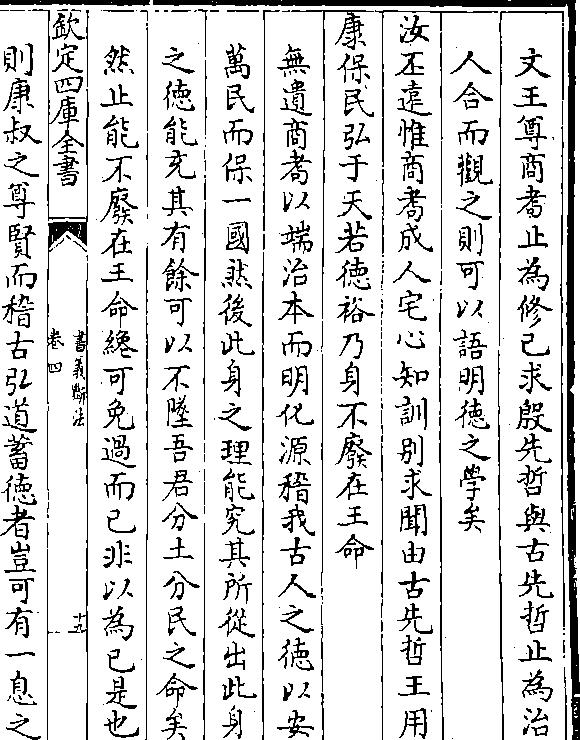 文王尊商耉止為修己求殷先哲與古先哲止為治
人合而觀之則可以語明徳之學矣
汝丕遠惟商耉成人宅心知訓别求聞由古先哲王用
康保民弘于天若徳裕乃身不廢在王命
無遺商耉以端治本而明化源稽我古人之徳以安
萬民而保一國然後此身之理能究其所從出此身
之徳能充其有餘可以不墜吾君分土分民之命矣
然止能不廢在王命纔可免過而已非以為已是也
欽定四庫全書
書義斷法
卷四
十五
則康叔之尊賢而稽古弘道蓄徳者豈可有一息之